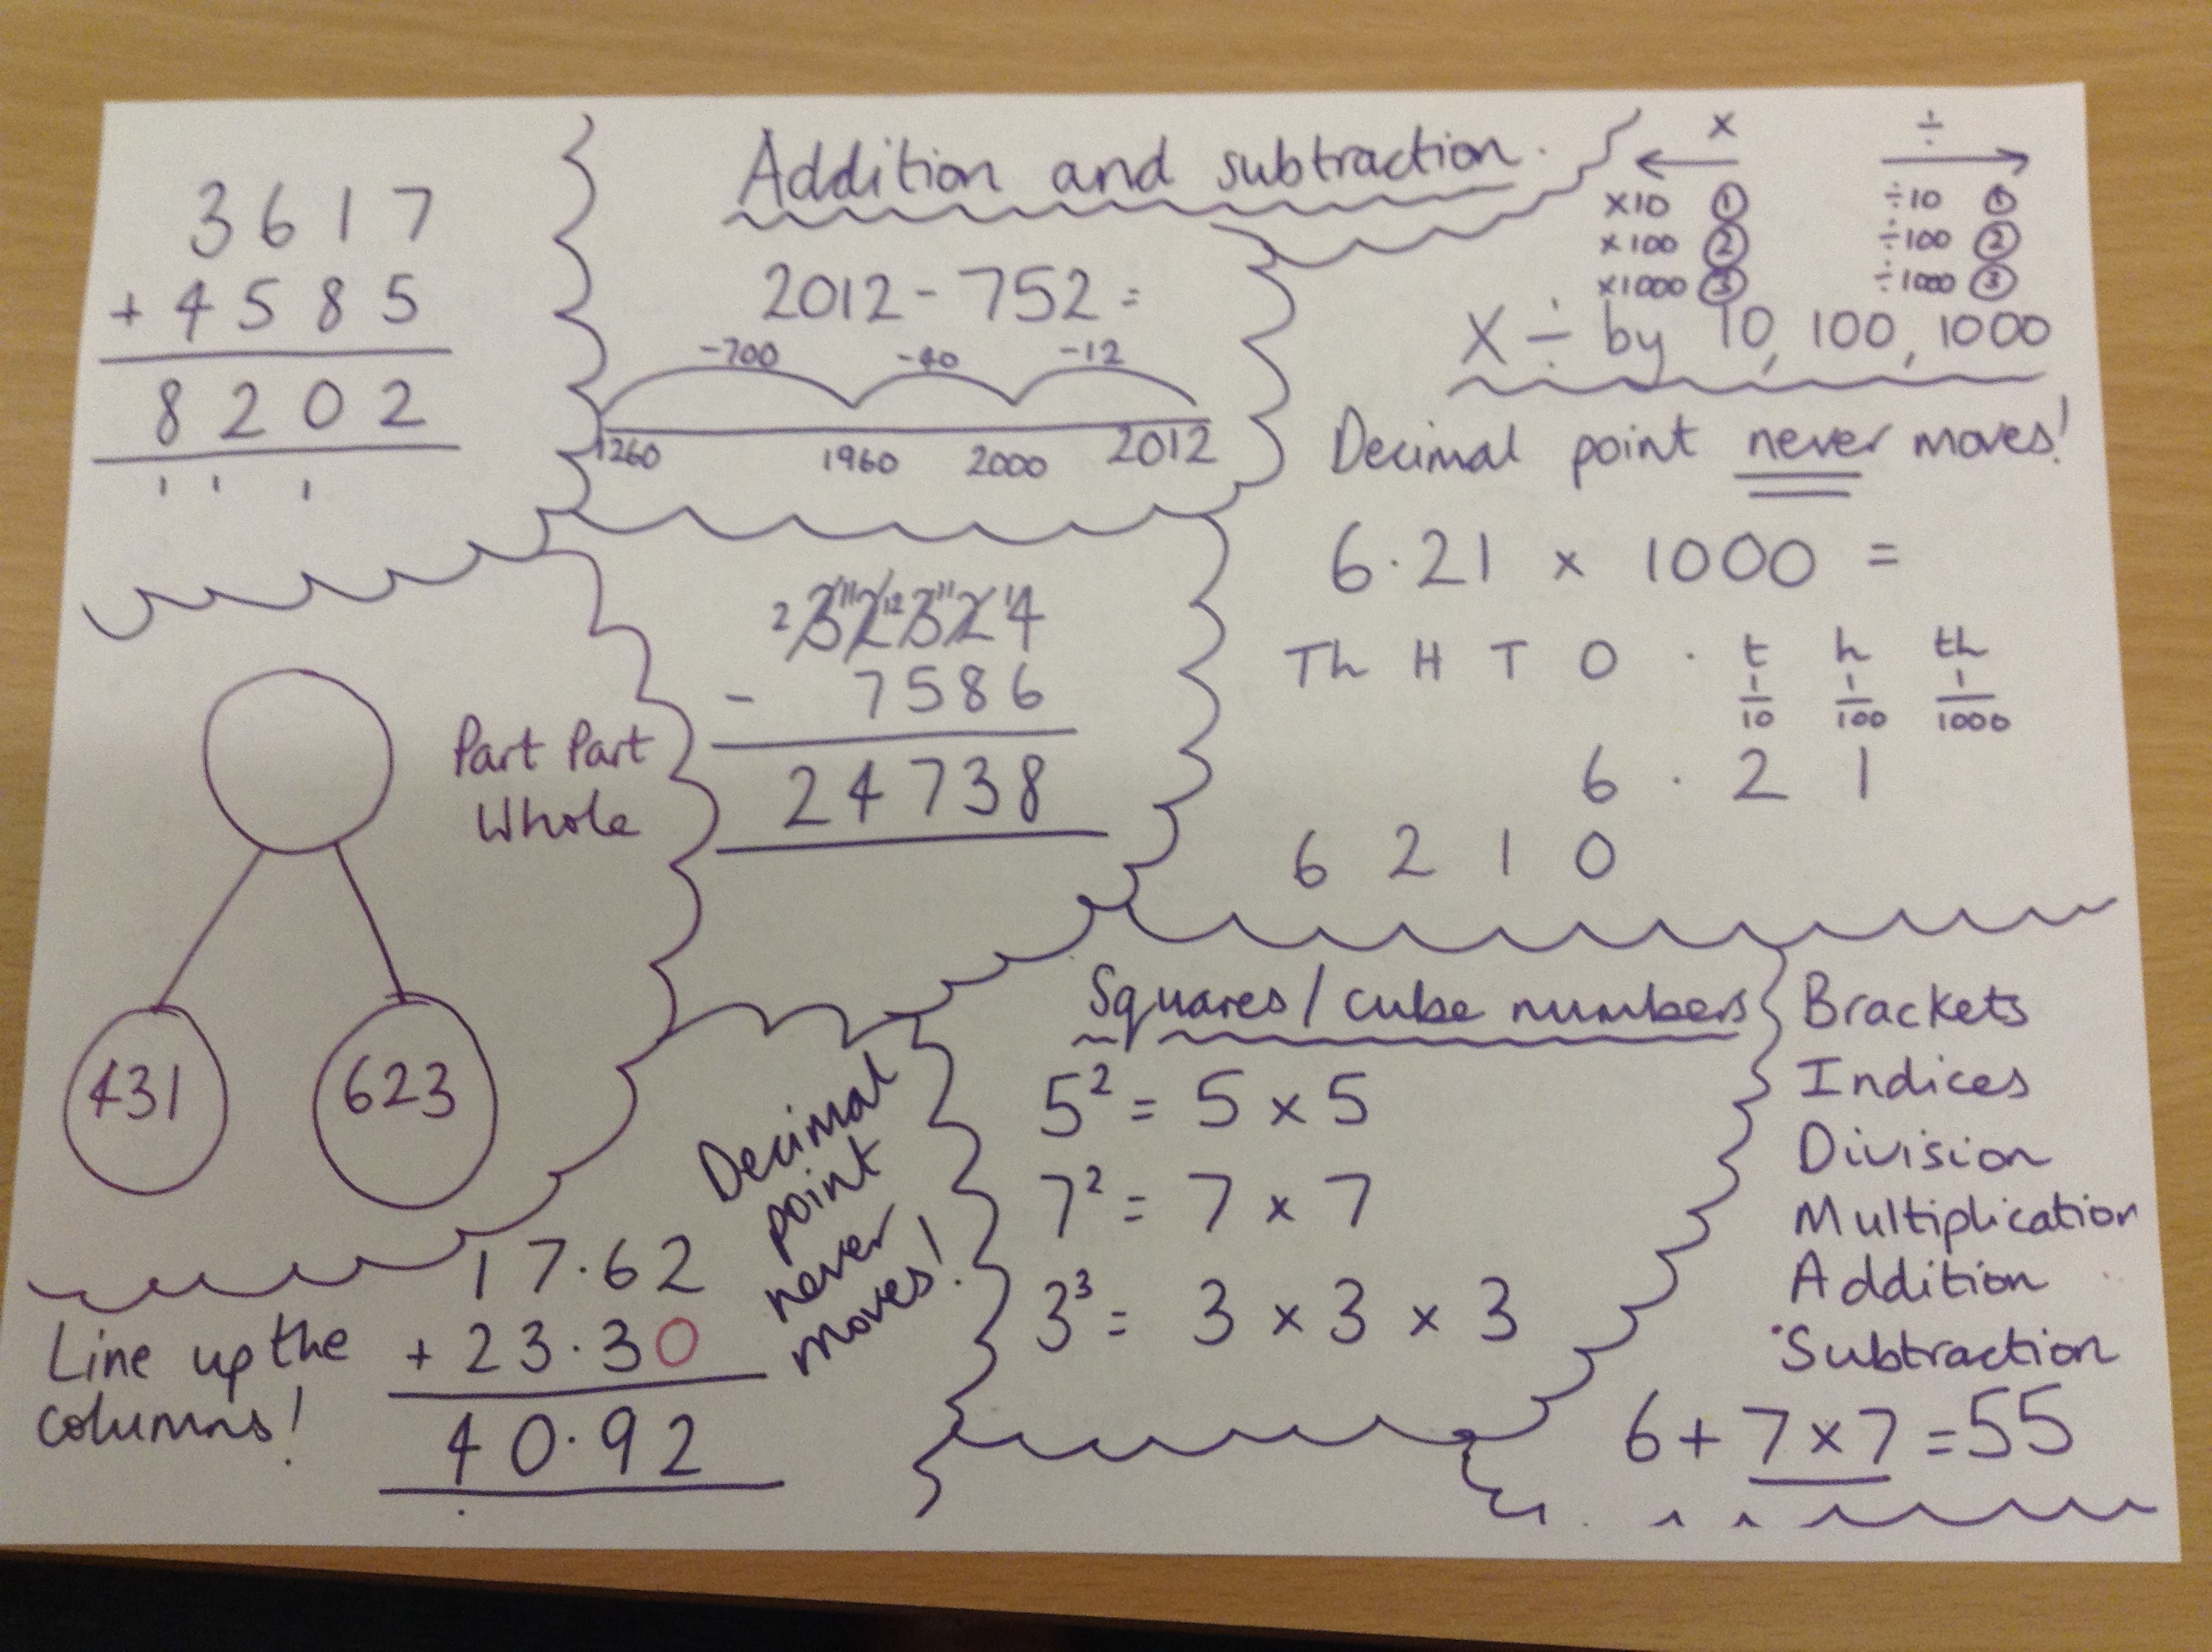 3617
+ 4585
8202
1 1 1
Addition and subtraction.
2012 - 752 =
-700 -40 -12
1260 1960 2000 2012
× ÷
×10 ① ÷10 ①
×100 ② ÷100 ②
×1000 ③ ÷1000 ③
× ÷ by 10, 100, 1000
Decimal point never moves!
6.21 × 1000 =
Th H T O . t h th
1/10 1/100 1/1000
6 . 2 1
6 2 1 0
2 11 12 11 1
32324
- 7586
24738
Part Part
Whole
431 623
Line up the
columns!
17.62
+ 23.30
40.92
Decimal
point
never
moves!
Squares / cube numbers
5² = 5 × 5
7² = 7 × 7
3³ = 3 × 3 × 3
Brackets
Indices
Division
Multiplication
Addition
Subtraction
6 + 7 × 7 = 55